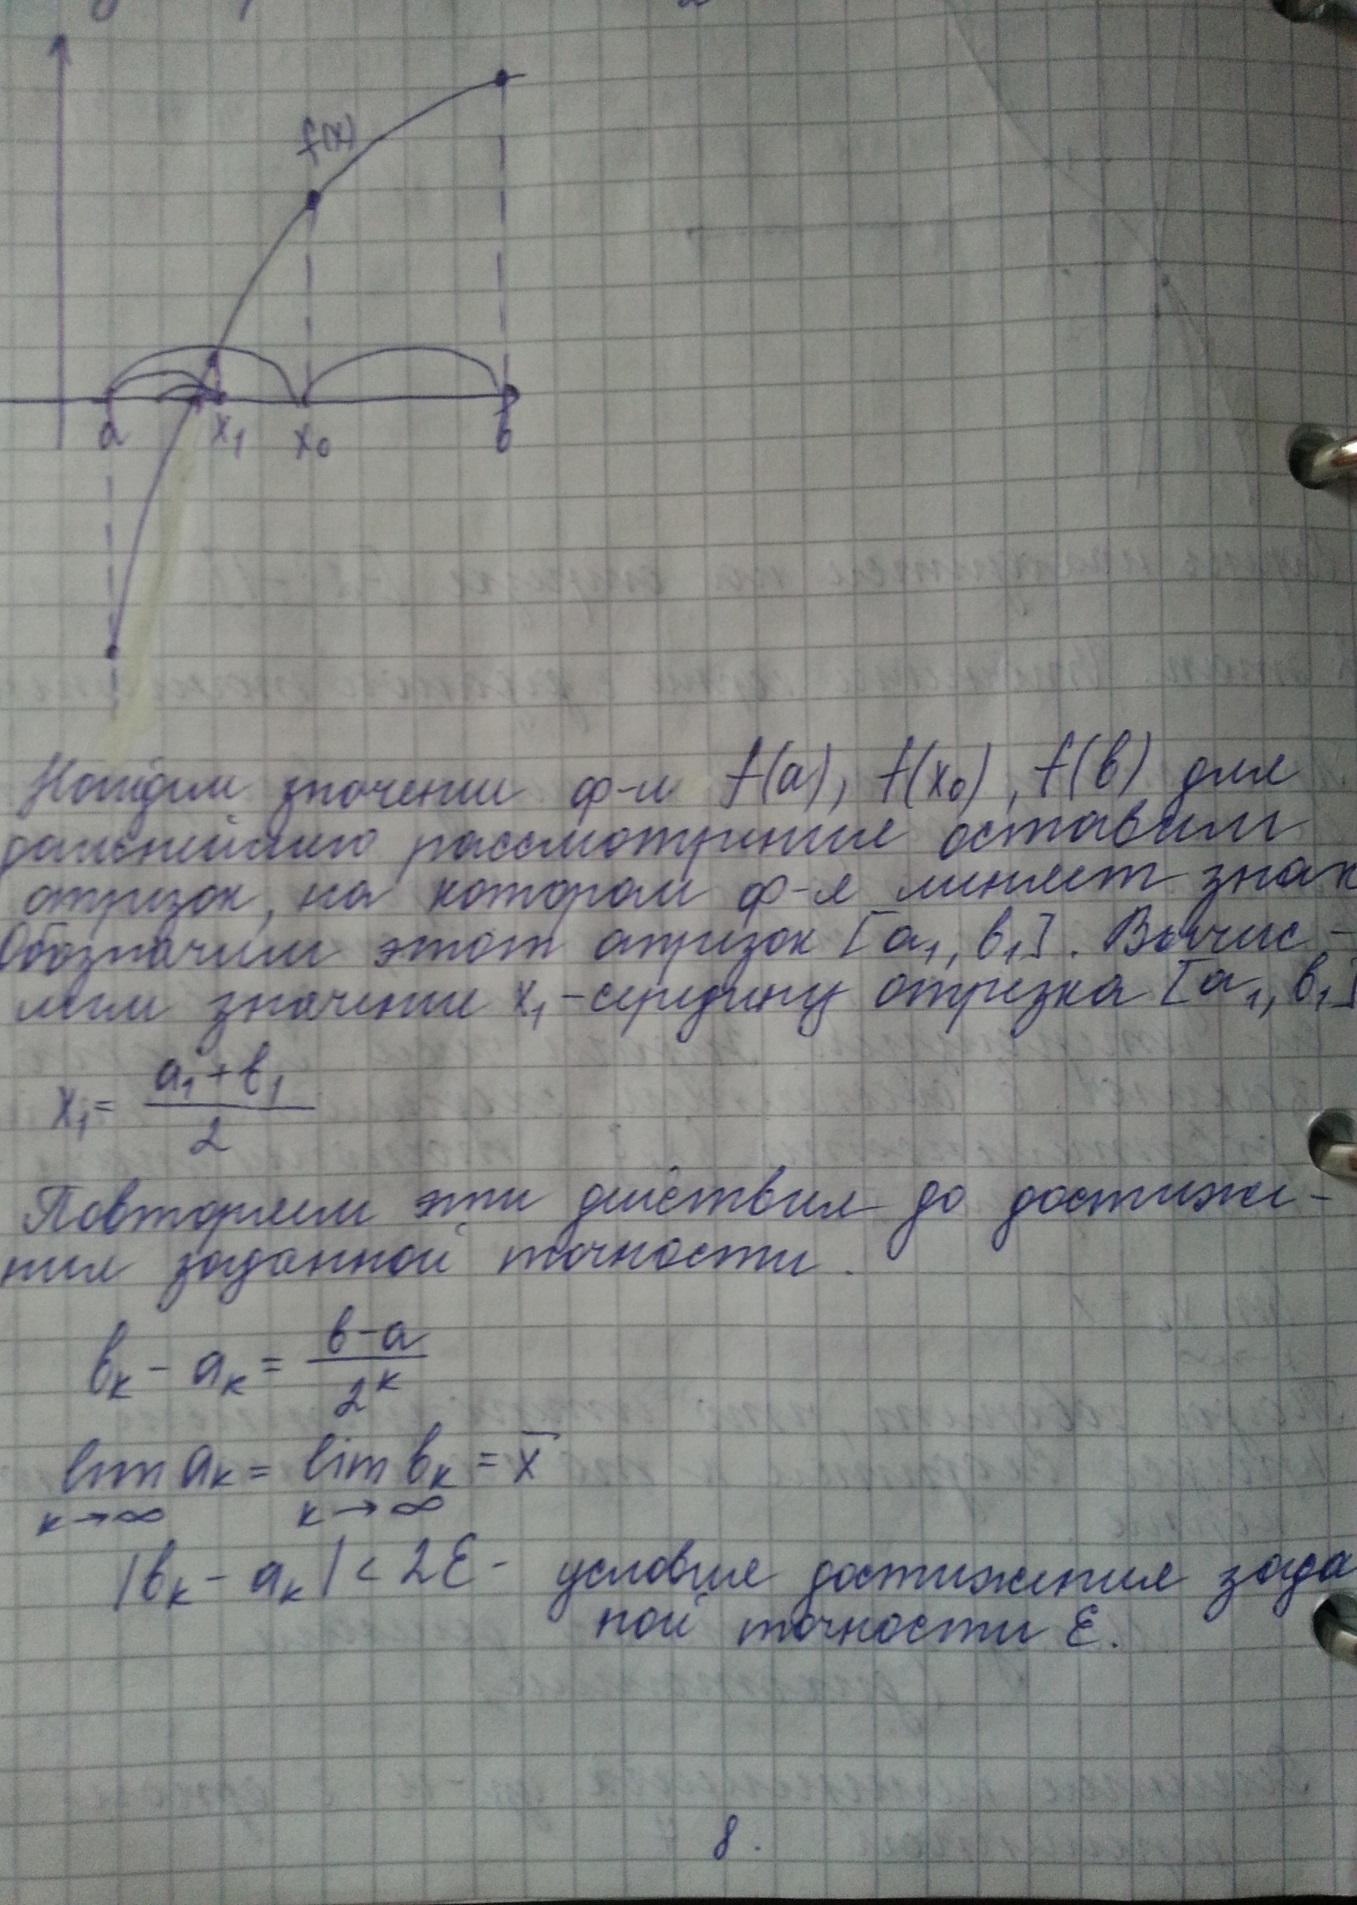 f(x)
a x₁ x₀ в
Найдём значении ф-и f(a), f(x₀), f(в) для
дальнейшего рассмотрения оставим
отрезок, на котором ф-я меняет знак
Обозначим этот отрезок [a₁, в₁]. Вычис-
лим значение x₁-середину отрезка [a₁, в₁]
x₁ = (a₁+в₁)/2
Повторяем эти действия до достиже-
ния заданной точности.
вₖ - aₖ = (в-a)/2ᵏ
lim aₖ = lim вₖ = x̄
к→∞ к→∞
|вₖ - aₖ| < 2ε - условие достижения зада
ной точности ε.
8.